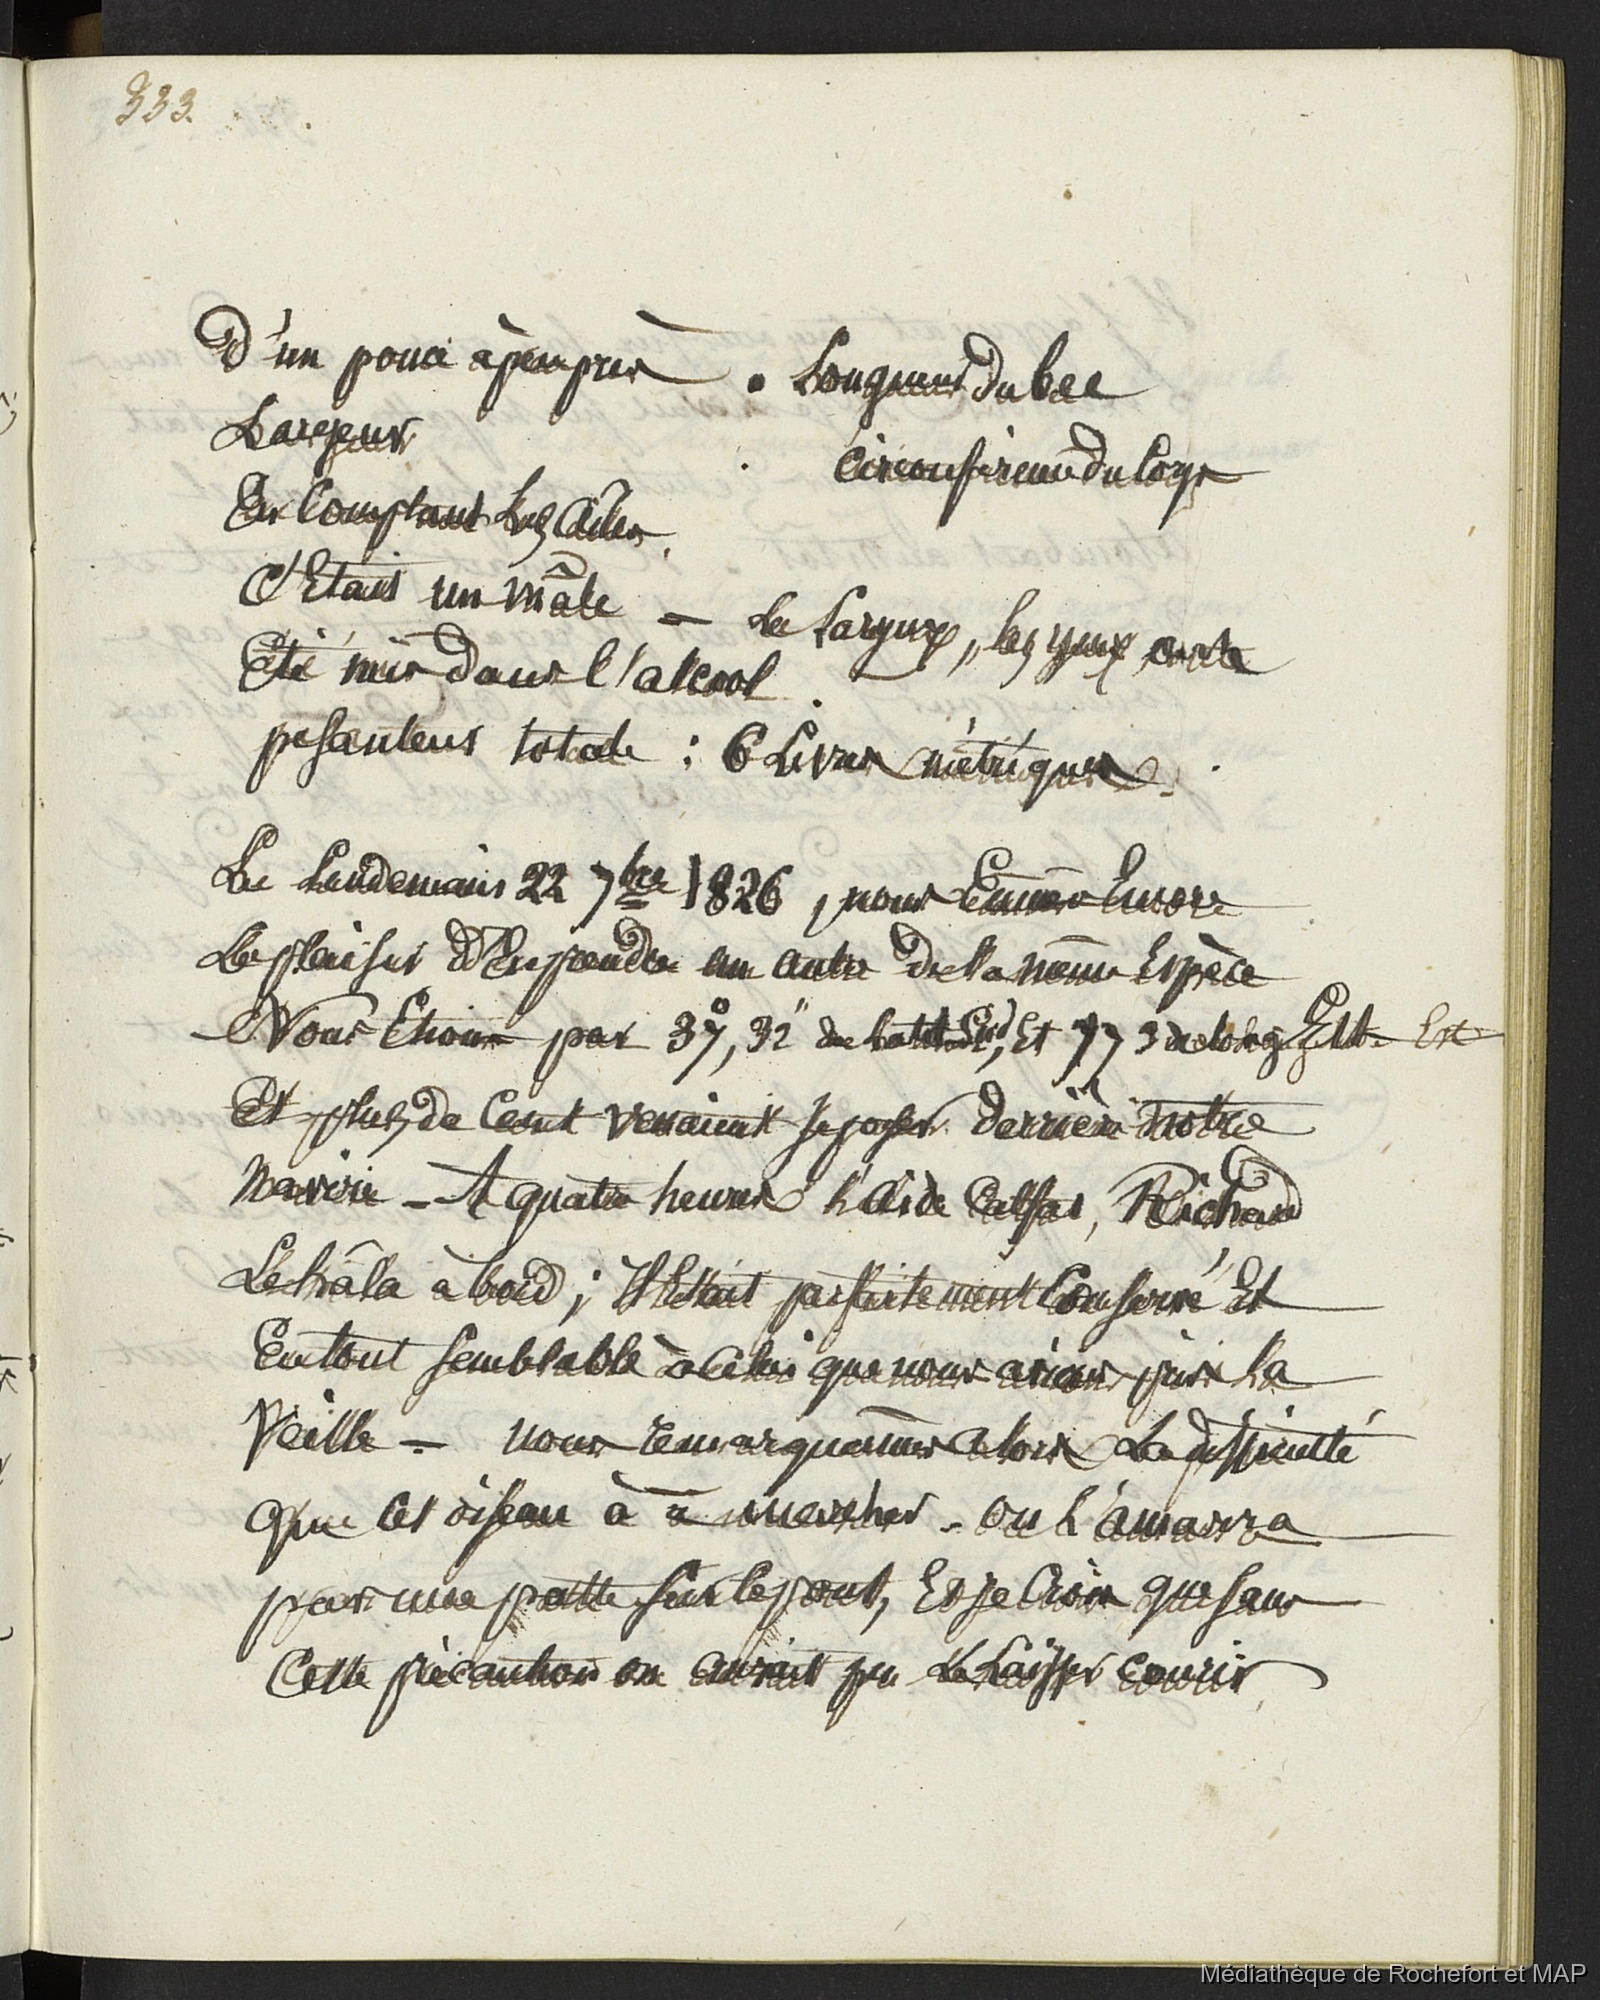 333.
D'un pouce à peu près . Longueur du bec
Largeur
circonférence du Corps
En Comptant les Ailes.
C'Etait un mâle — Le Larynx, les yeux, ont
Eté mis dans l'alcool.
pesanteur totale : 6 Livres métriques.
Le Lendemain 22 7bre 1826, nous Eumes Encore
Le plaisir d'En prendre un autre de la même Espèce
Nous Etions par 37°, 32" de latit Sud, Et 77 3 de long Est
Et plus de Cent venaient se poser derrière notre
Navire — A quatre heures l'aide Calfat, Richaud
Le hâla à bord ; Il Etait parfaitement Conservé Et
En tout semblable à Celui que nous avions pris La
Veille — nous remarquames alors La difficulté
que Cet oiseau à à marcher — on L'amarra
par une patte sur le pont, Et je Crois que sans
Cette précaution on aurait pu Le Laisser courir,
Médiathèque de Rochefort et MAP